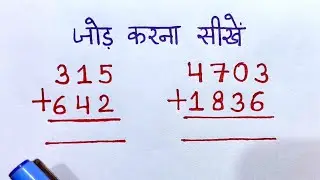 जोड़ करना सीखें
315 4703
+642 +1836